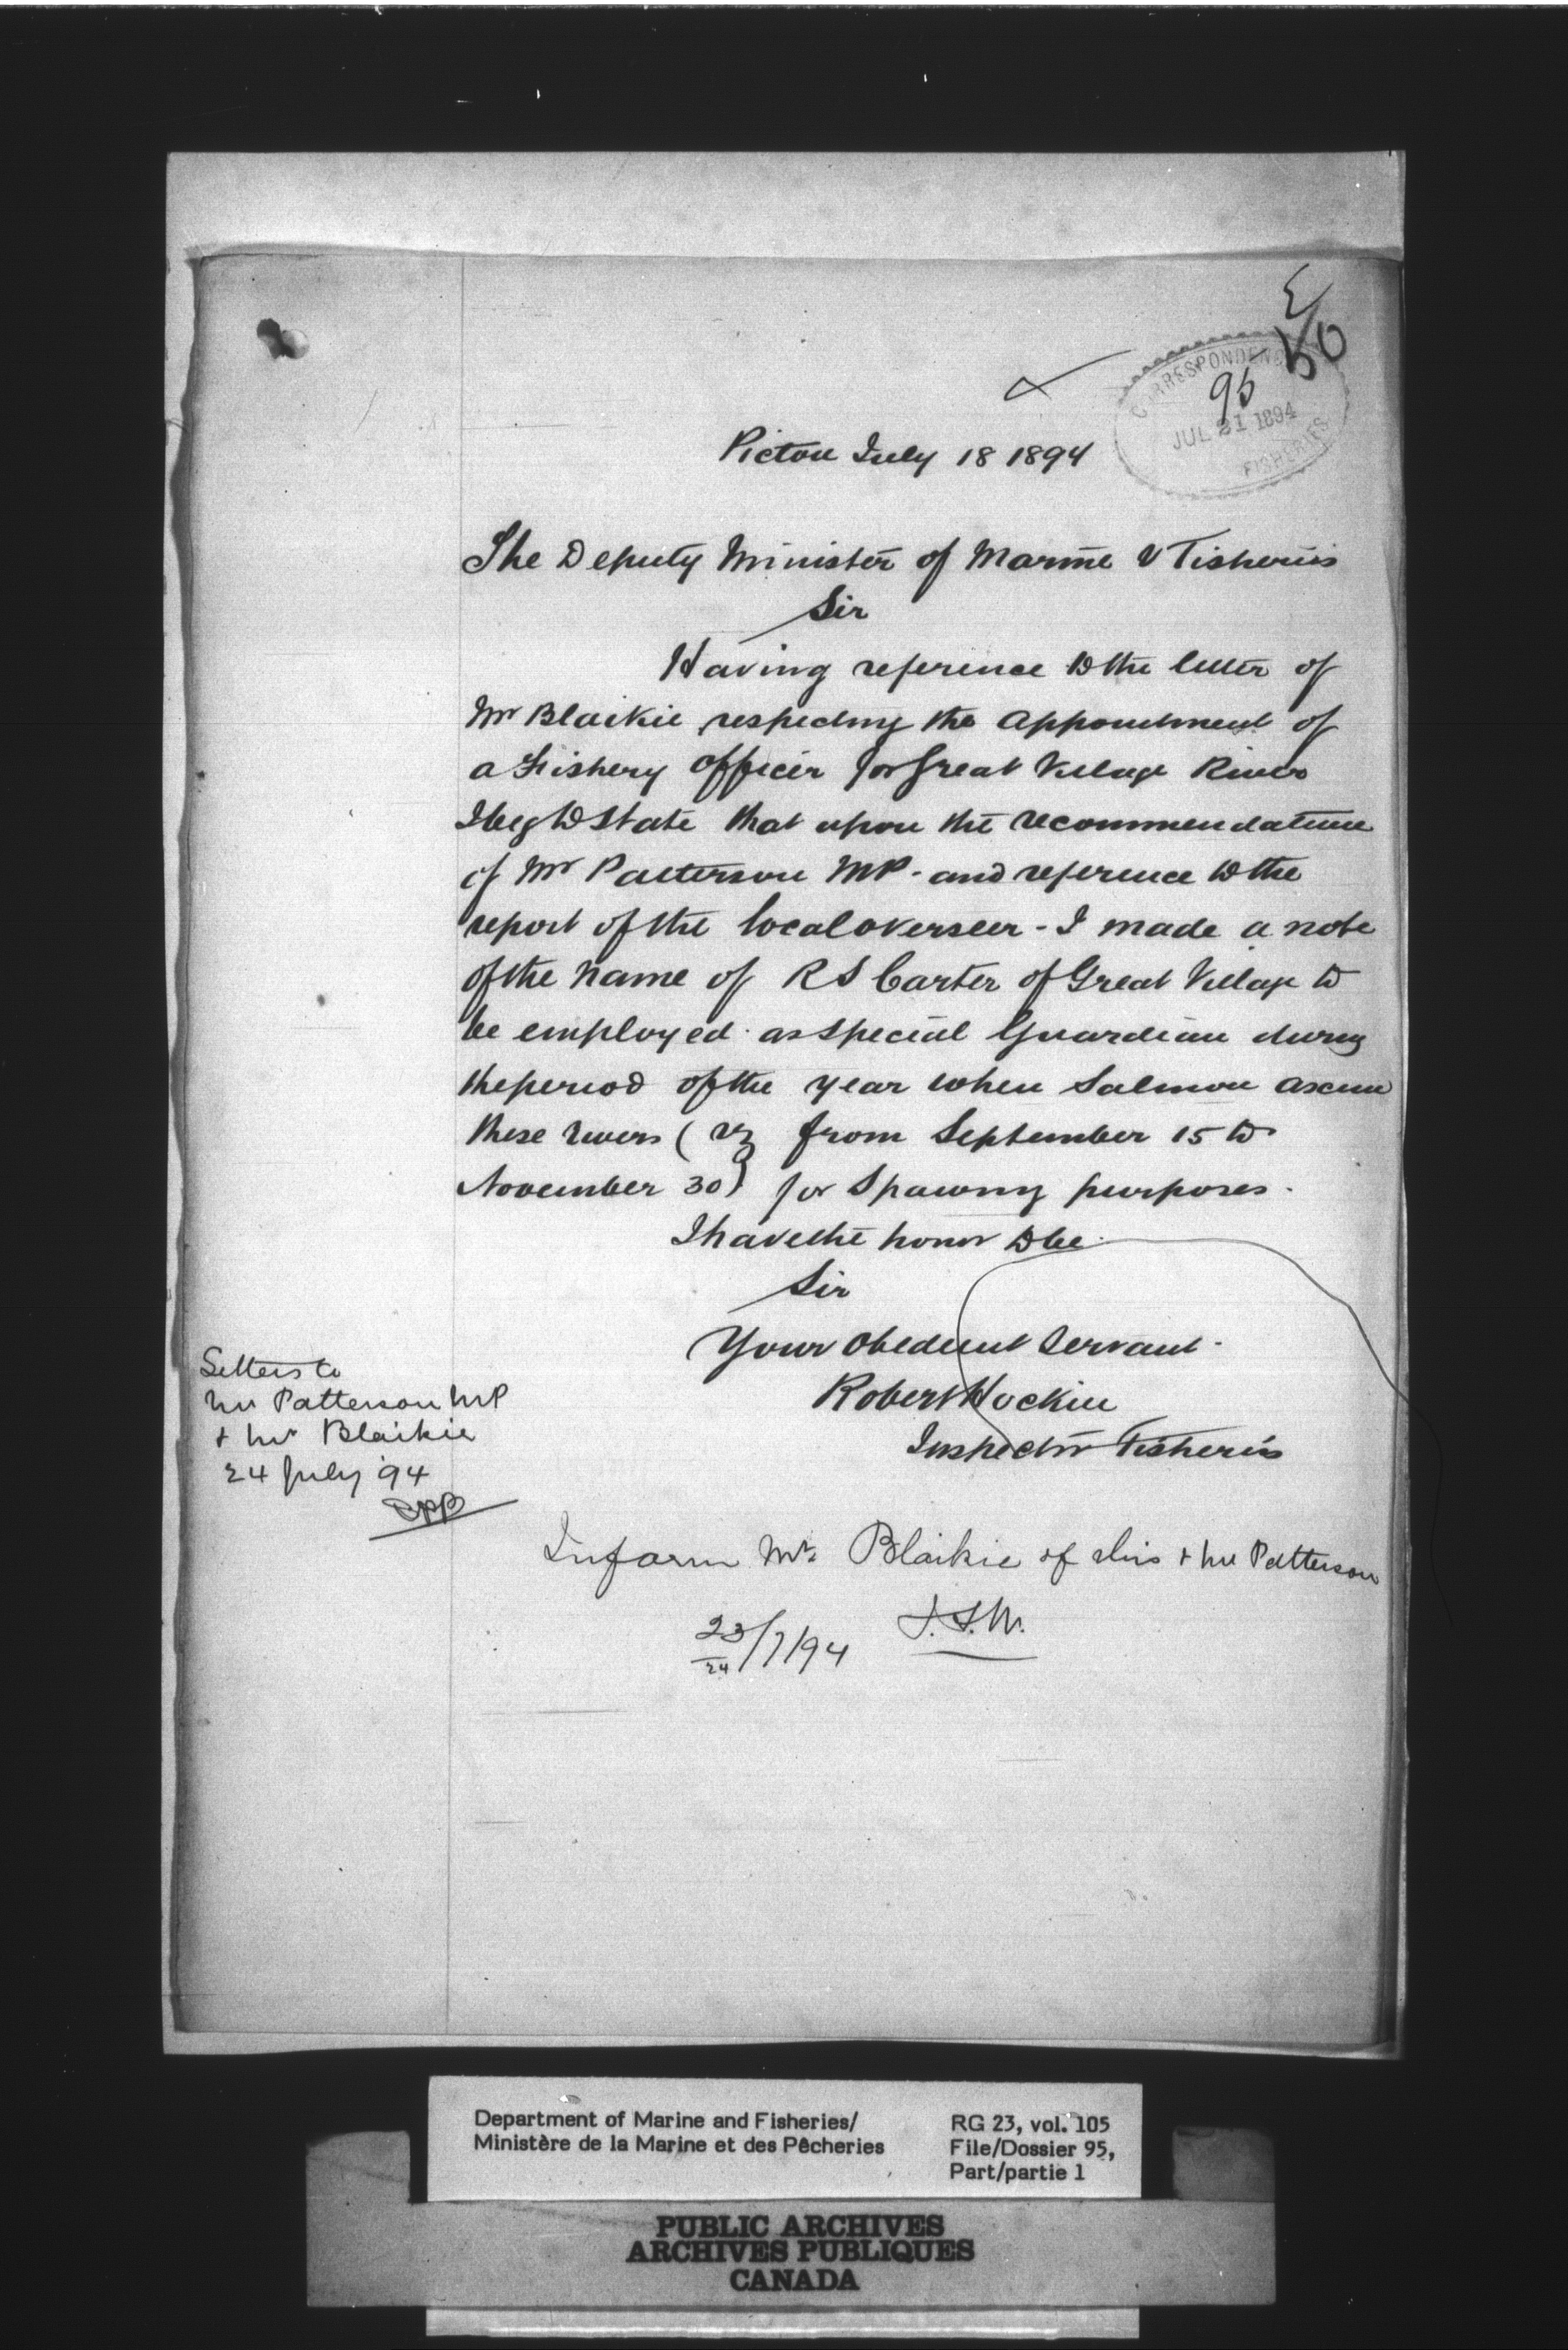 E/50
CORRESPONDENCE
95
JUL 21 1894
FISHERIES
Pictou July 18 1894
The Deputy Minister of Marine & Fisheries
Sir
Having reference to the letter of
Mr Blaikie respecting the appointment of
a Fishery officer for Great Village River
I beg to state that upon the recommendation
of Mr Patterson MP - and reference to the
report of the local overseer - I made a note
of the name of R S Carter of Great Village to
be employed as special Guardian during
the period of the year when Salmon ascend
these rivers (viz from September 15 to
November 30) for Spawning purposes.
I have the honor to be
Sir
Your obedient Servant
Robert Hockin
Inspector Fisheries
Letters to
Mr Patterson MP
+ Mr Blaikie
24 July '94
Inform Mr. Blaikie of this + Mr Patterson
23/7/94
24
Department of Marine and Fisheries/
Ministère de la Marine et des Pêcheries
RG 23, vol. 105
File/Dossier 95,
Part/partie 1
PUBLIC ARCHIVES
ARCHIVES PUBLIQUES
CANADA